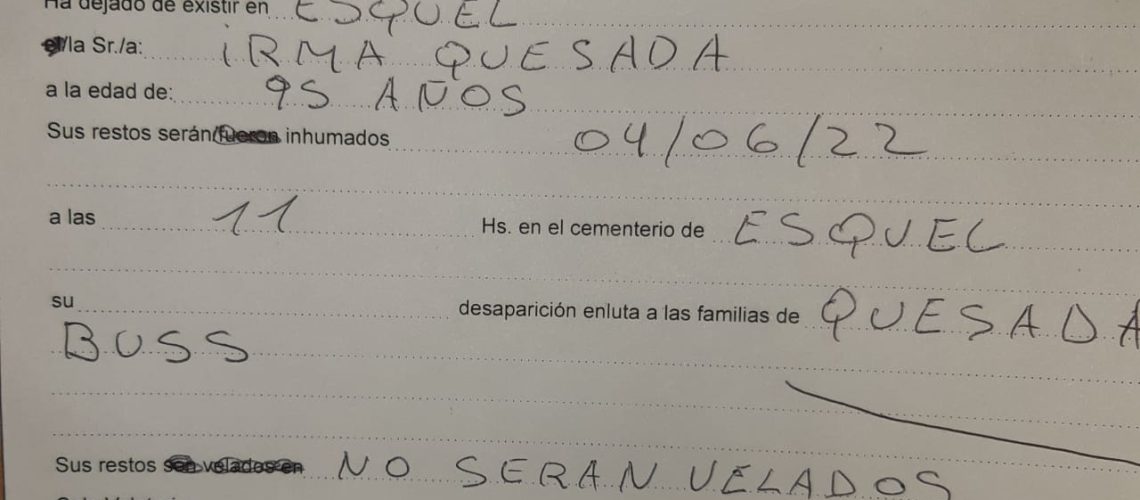 Ha dejado de existir en ESQUEL
/la Sr./a: IRMA QUESADA
a la edad de: 95 AÑOS
Sus restos serán/fueron inhumados 04/06/22
a las 11 Hs. en el cementerio de ESQUEL
su desaparición enluta a las familias de QUESADA
BUSS
Sus restos son velados en NO SERAN VELADOS